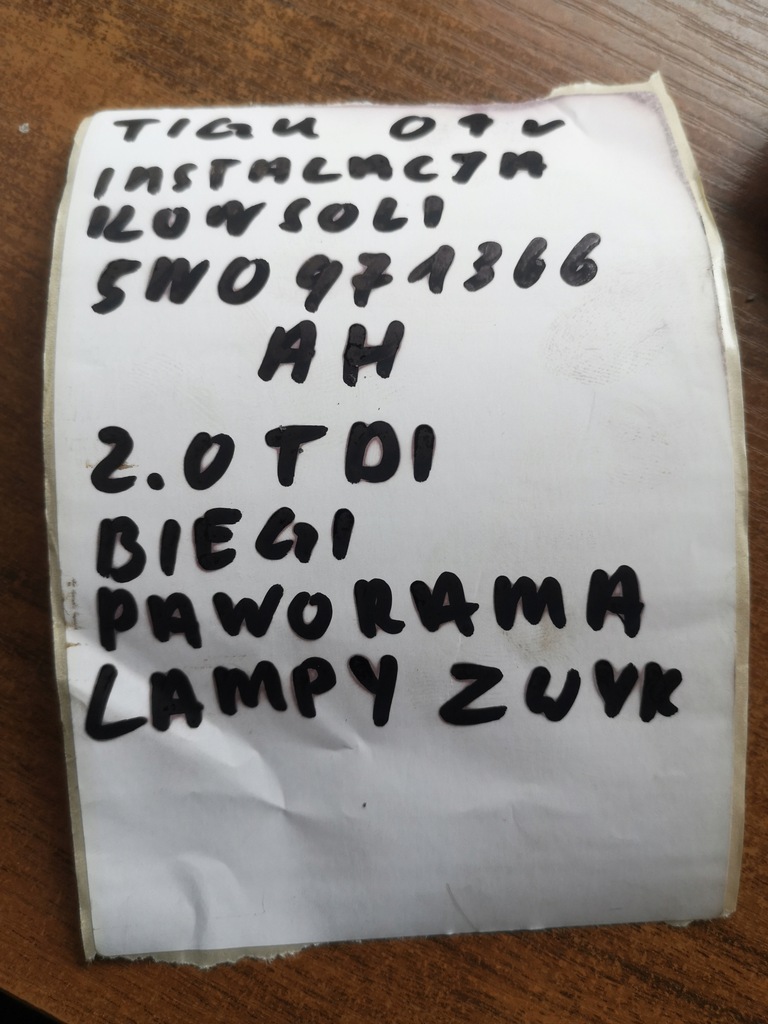 TIGU 07r
INSTALACJA
KONSOLI
5N0971366
AH
2.0 TDI
BIEGI
PANORAMA
LAMPY ZWYK